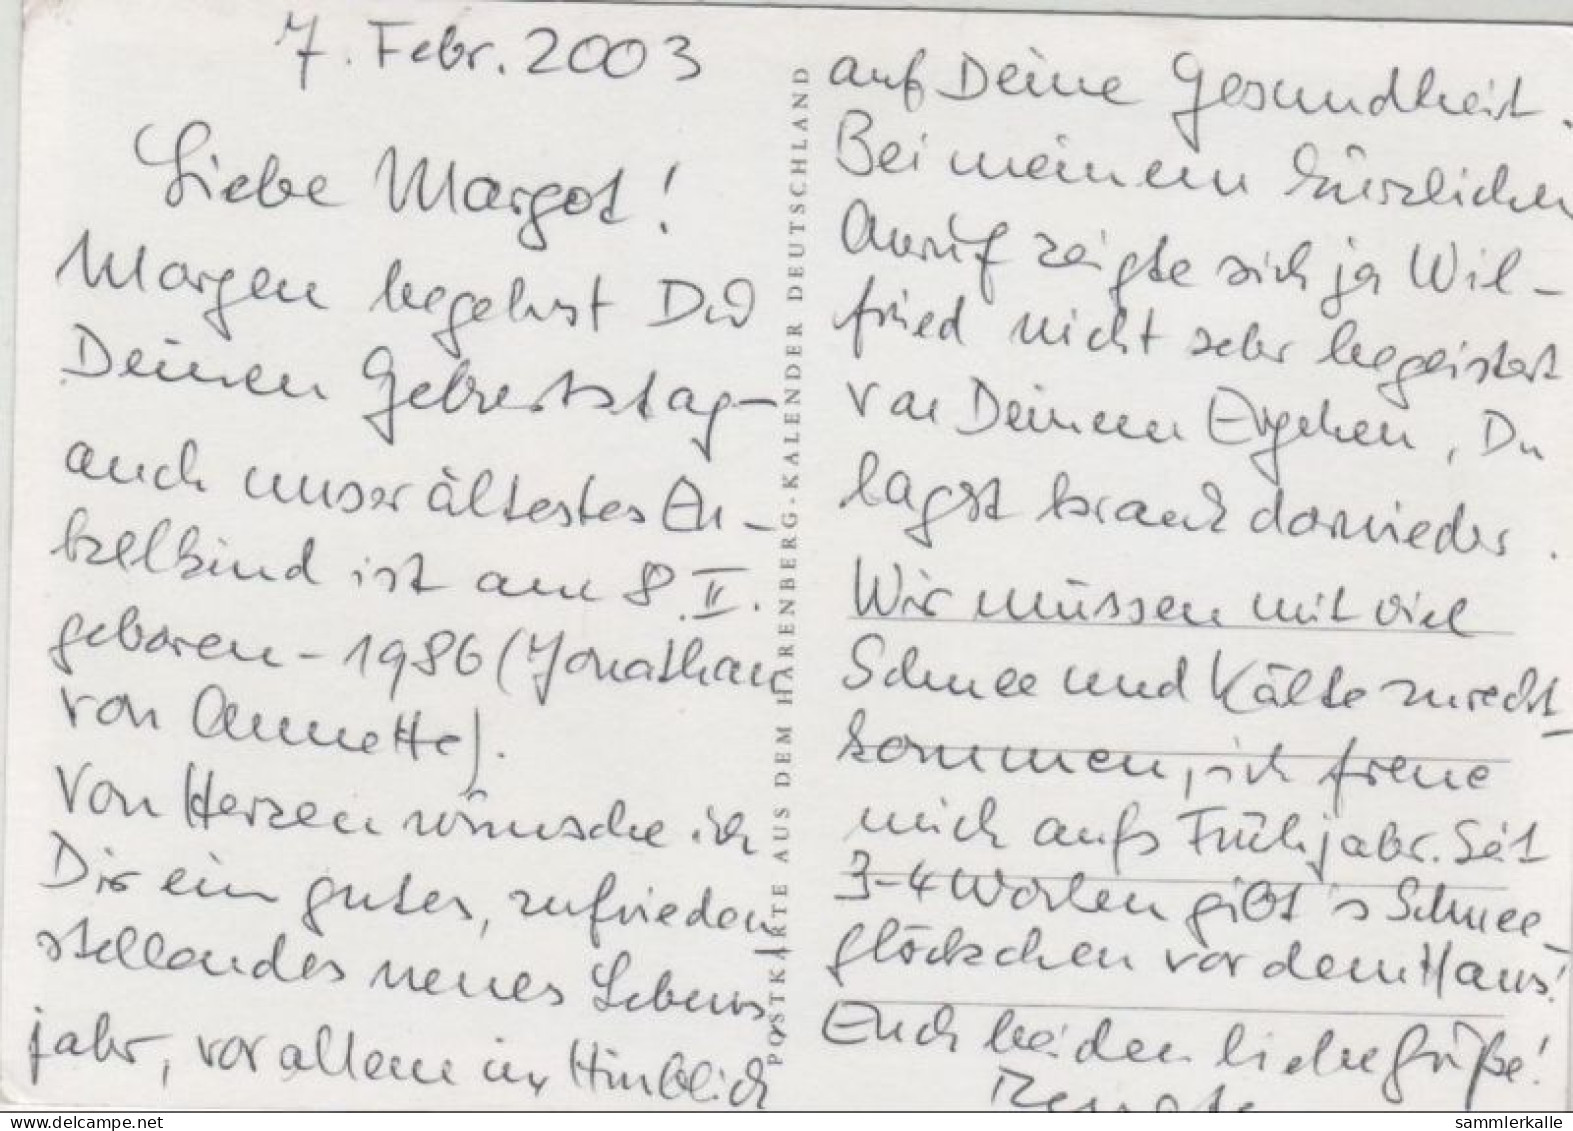 7. Febr. 2003
Liebe Margot!
Morgen begehst Du
Deinen Geburtstag-
auch unser ältestes En-
kelkind ist am 8.II.
geboren - 1986 (Jonathan
von Annette).
Von Herzen wünsche ich
Dir ein gutes, zufrieden
stellendes neues Lebens
jahr, vor allem im Hinblick
POSTKARTE AUS DEM HARENBERG-KALENDER DEUTSCHLAND
auf Deine Gesundheit.
Bei meinem kürzlichen
Anruf zeigte sich ja Wil-
fried nicht sehr begeistert
von Deinem Ergehen, Du
lagst krank darnieder.
Wir müssen mit viel
Schnee und Kälte zurecht-
kommen, ich freue
mich aufs Frühjahr. Seit
3-4 Wochen gibt's Schnee-
glöckchen vor dem Haus!
Euch beiden liebe Grüße!
Renate
www.delcampe.net
sammlerkalle